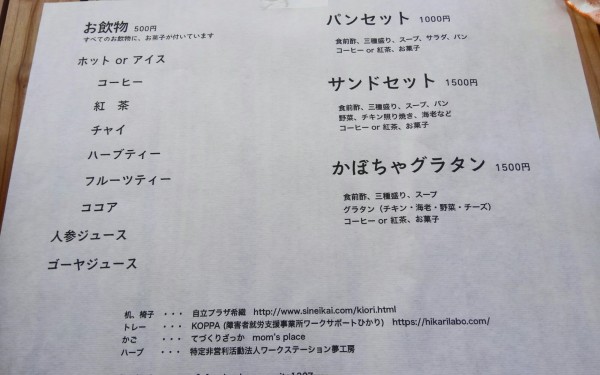 お飲物 500円
すべてのお飲物に、お菓子が付いています
ホット or アイス
コーヒー
紅 茶
チャイ
ハーブティー
フルーツティー
ココア
人参ジュース
ゴーヤジュース
パンセット 1000円
食前酢、三種盛り、スープ、サラダ、パン
コーヒー or 紅茶、お菓子
サンドセット 1500円
食前酢、三種盛り、スープ、パン
野菜、チキン照り焼き、海老など
コーヒー or 紅茶、お菓子
かぼちゃグラタン 1500円
食前酢、三種盛り、スープ
グラタン（チキン・海老・野菜・チーズ）
コーヒー or 紅茶、お菓子
机、椅子 ・・・ 自立プラザ希織 http://www.sineikai.com/kiori.html
トレー ・・・ KOPPA (障害者就労支援事業所ワークサポートひかり) https://hikarilabo.com/
かご ・・・ てづくりざっか mom's place
ハーブ ・・・ 特定非営利活動法人ワークステーション夢工房